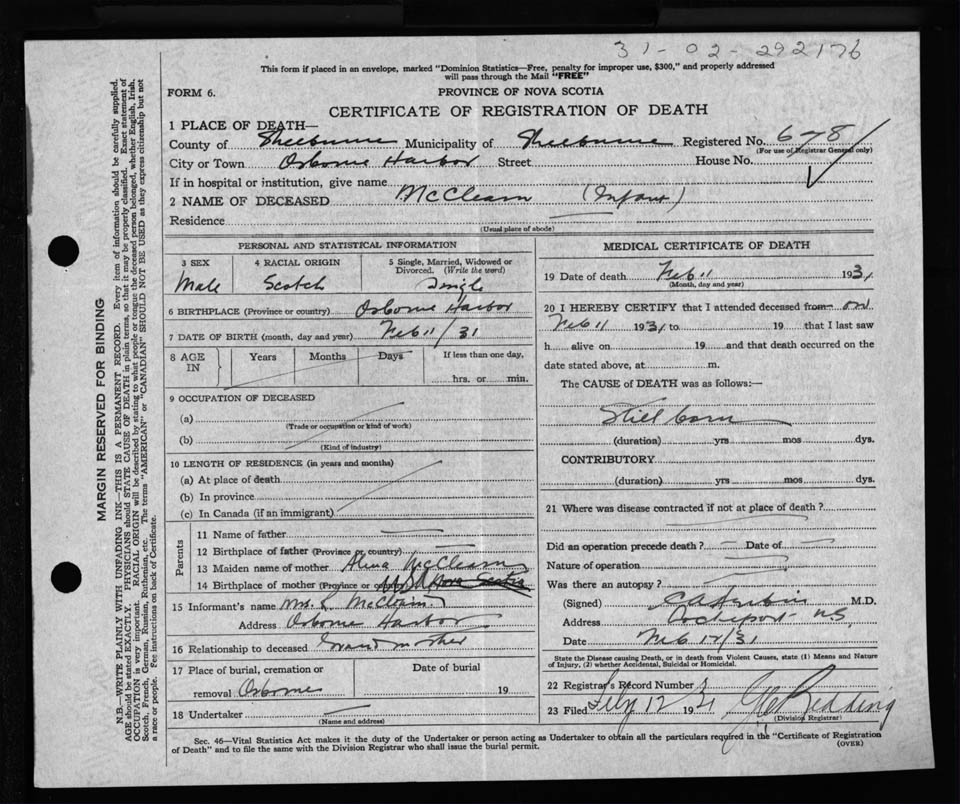 31-02-292176
This form if placed in an envelope, marked "Dominion Statistics—Free, penalty for improper use, $300," and properly addressed
will pass through the Mail "FREE"
FORM 6.
PROVINCE OF NOVA SCOTIA
CERTIFICATE OF REGISTRATION OF DEATH
1 PLACE OF DEATH—
County of Shelburne Municipality of Shelburne Registered No. 678
(For use of Registrar General only)
City or Town Osborne Harbor Street House No.
If in hospital or institution, give name
2 NAME OF DECEASED McClearn (Infant)
Residence
(Usual place of abode)
PERSONAL AND STATISTICAL INFORMATION
3 SEX 4 RACIAL ORIGIN 5 Single, Married, Widowed or
Divorced. (Write the word)
Male Scotch Single
6 BIRTHPLACE (Province or country) Osborne Harbor
7 DATE OF BIRTH (month, day and year) Feb 11/31
8 AGE IN Years Months Days If less than one day,
hrs. or min.
9 OCCUPATION OF DECEASED
(a)
(Trade or occupation or kind of work)
(b)
(Kind of industry)
10 LENGTH OF RESIDENCE (in years and months)
(a) At place of death
(b) In province
(c) In Canada (if an immigrant)
Parents
11 Name of father
12 Birthplace of father (Province or country)
13 Maiden name of mother Alma McClearn
14 Birthplace of mother (Province or country) Nova Scotia
15 Informant's name Mrs. L. McClearn
Address Osborne Harbor
16 Relationship to deceased Grand mother
17 Place of burial, cremation or Date of burial
removal Osborne 19
18 Undertaker
(Name and address)
MEDICAL CERTIFICATE OF DEATH
19 Date of death Feb 11 1931
(Month, day and year)
20 I HEREBY CERTIFY that I attended deceased from
Feb 11 1931 to 19 that I last saw
h alive on 19 and that death occurred on the
date stated above, at m.
The CAUSE of DEATH was as follows:—
Still born
(duration) yrs mos dys.
CONTRIBUTORY
(duration) yrs mos dys.
21 Where was disease contracted if not at place of death?
Did an operation precede death? Date of
Nature of operation
Was there an autopsy?
(Signed) M.D.
Address Lockeport N.S.
Date Feb 12/31
State the Disease causing Death, or in death from Violent Causes, state (1) Means and Nature
of Injury, (2) whether Accidental, Suicidal or Homicidal.
22 Registrar's Record Number
23 Filed Feby 12 1931 Redding
(Division Registrar)
Sec. 46—Vital Statistics Act makes it the duty of the Undertaker or person acting as Undertaker to obtain all the particulars required in the "Certificate of Registration
of Death" and to file the same with the Division Registrar who shall issue the burial permit.
(OVER)
MARGIN RESERVED FOR BINDING
N.B.—WRITE PLAINLY WITH UNFADING INK—THIS IS A PERMANENT RECORD. Every item of information should be carefully supplied.
AGE should be stated EXACTLY. PHYSICIANS should STATE CAUSE OF DEATH in plain terms, so that it may be properly classified. Exact statement of
OCCUPATION is very important. RACIAL ORIGIN will be described by stating to what people or tongue the deceased person belonged, whether English, Irish,
Scotch, French, German, Russian, Ruthenian, etc. The terms "AMERICAN" or "CANADIAN" SHOULD NOT BE USED as they express citizenship but not
a race or people. Fee instructions on back of Certificate.